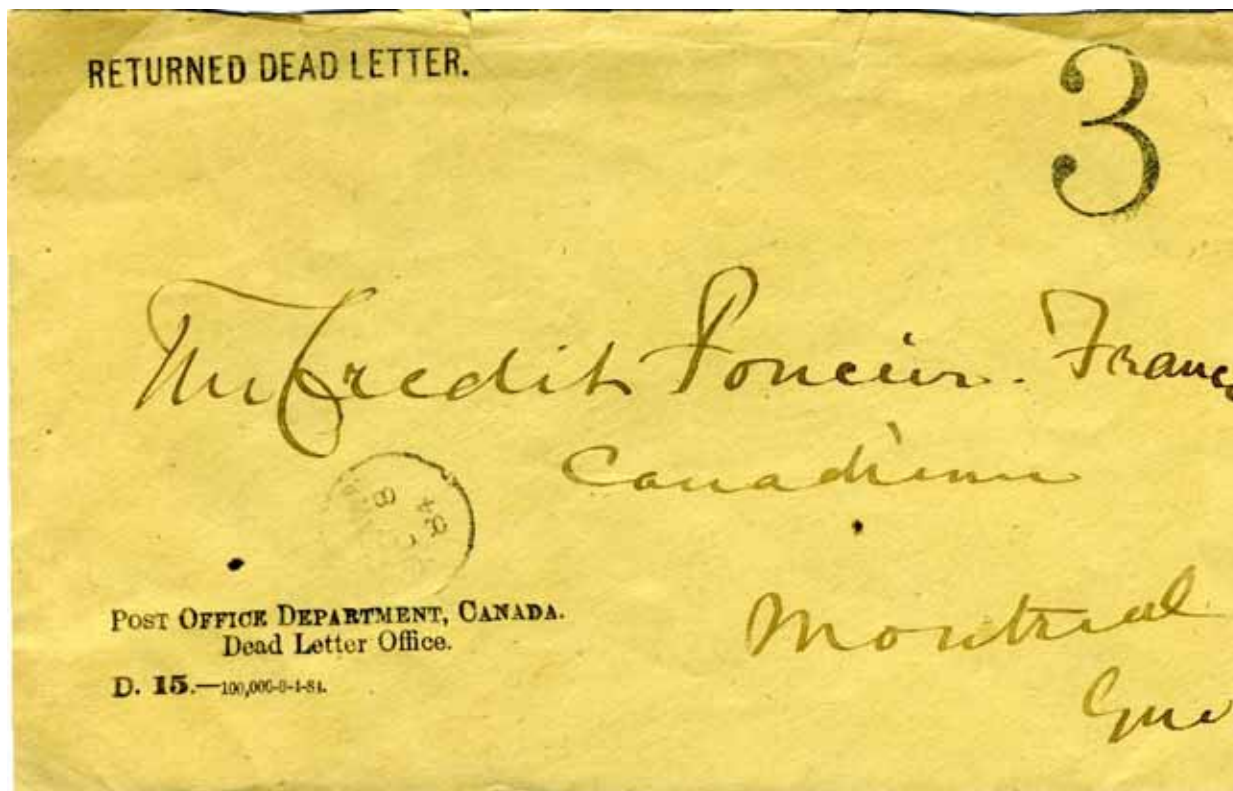 RETURNED DEAD LETTER.
3
The Credit Foncier Franc
Canadienne
Montreal
Que
POST OFFICE DEPARTMENT, CANADA.
Dead Letter Office.
D. 15.—100,000-9-4-84.